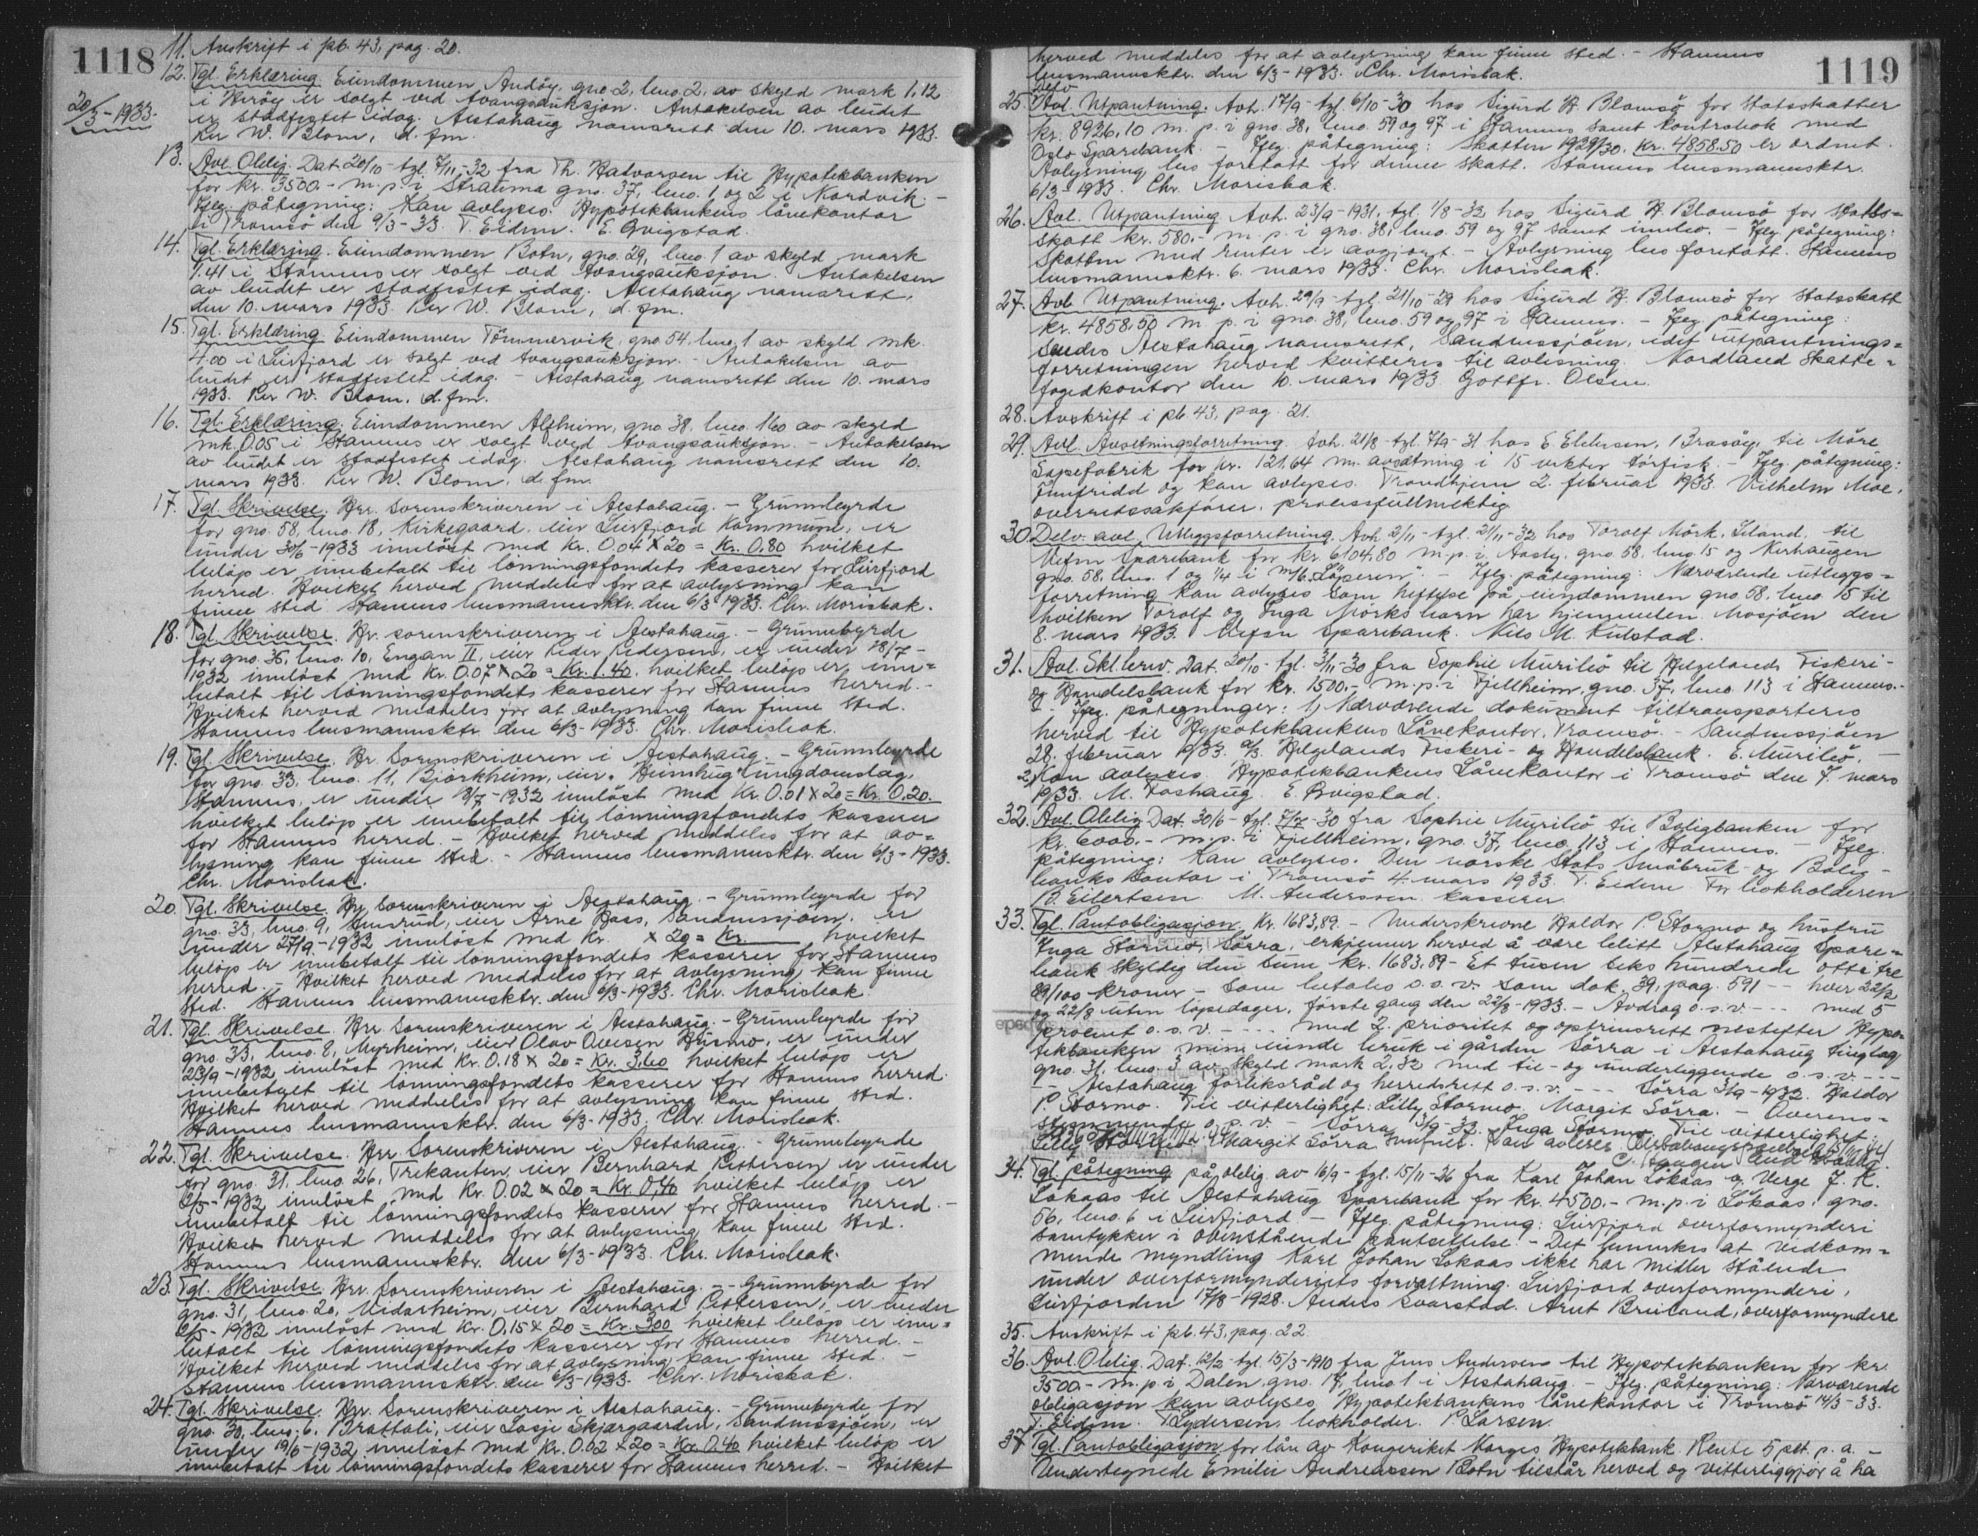 1118
11. Avskrift i pb. 43, pag. 20.
12. Tgl. Erklæring. Eiendommen Andöy, gno. 2, bno. 2, av skyld mark 1,12
20/3-1933.
i Heröy er solgt ved tvangsauksjon. Antakelsen av budet
er stadfestet idag. Alstahaug namsrett den 10. mars 1933.
Per W. Blom, d. fm.
13. Avl. Oblig. Dat. 20/10 - tgl. 7/11-32 fra Th. Halvorsen til Hypotekbanken
for kr. 3500.- m. p. i Stralima gno. 37, bno. 1 og 2 i Nordvik. -
Iflg. påtegning: Kan avlyses. Hypotekbankens lånekontor
i Tromsö den 9/3-33. T. Eidem. E. Qvigstad.
14. Tgl. Erklæring. Eiendommen Botn, gno. 29, bno. 1 av skyld mark
1.41 i Stamnes er solgt ved tvangsauksjon. Antakelsen
av budet er stadfestet idag. Alstahaug namsrett,
den 10. mars 1933. Per W. Blom, d. fm.
15. Tgl. Erklæring. Eiendommen Tömmervik, gno. 54, bno. 1 av skyld mk.
4.00 i Leirfjord er solgt ved tvangsauksjon. - Antakelsen av
budet er stadfestet idag. - Alstahaug namsrett den 10. mars
1933. Per W. Blom, d. fm.
16. Tgl. Erklæring. Eiendommen Alfheim, gno. 38, bno. 160 av skyld
mk. 0.05 i Stamnes er solgt ved tvangsauksjon. - Antakelsen
av budet er stadfestet idag. Alstahaug namsrett den 10.
mars 1933. Per W. Blom, d. fm.
17. Tgl. Skrivelse. Hr. Sorenskriveren i Alstahaug. - Grunnbyrde
for gno. 58, bno. 18, Kirkegaard, eier Leirfjord Kommune, er
under 30/6-1933 innlöst med Kr. 0.04 x 20 = Kr. 0.80 hvilket
belöp er innbetalt til lönningsfondets kasserer for Leirfjord
herred. Hvilket herved meddeles for at avlysning kan
finne sted. Stamnes lensmannsktr. den 6/3 1933. Chr. Morisbak.
18. Tgl. Skrivelse. Hr. sorenskriveren i Alstahaug. - Grunnbyrde
for gno. 36, bno. 10, Engan II, eier Peder Pedersen, er under 18/7-
1932 innlöst med Kr. 0.07 x 20 = Kr. 1.40, hvilket belöp er inn=
betalt til lönningsfondets kasserer for Stamnes herred. -
Hvilket herved meddeles for at avlysning kan finne sted.
Stamnes lensmannsktr. den 6/3-1933. Chr. Morisbak.
19. Tgl. Skrivelse. Hr. Sorenskriveren i Alstahaug. - Grunnbyrde
for gno. 33, bno. 11, Björkheim, eier " ungdomslag,
Stamnes, er under 8/7-1932 innlöst med Kr. 0.01 x 20 = Kr. 0.20.
hvilket belöp er innbetalt til lönningsfondets kasserer
for Stamnes herred. - Hvilket herved meddeles for at av=
lysning kan finne sted. - Stamnes lensmannsktr. den 6/3-1933.
Chr. Morisbak.
20. Tgl. Skrivelse. Hr. Sorenskriveren i Alstahaug. - Grunnbyrde for
gno. 33, bno. 9, eier Arne Hass, Sandnessjöen, er
under 27/9-1932 innlöst med Kr. x 20 = Kr. hvilket
belöp er innbetalt til lönningsfondets kasserer for Stamnes
herred. - Hvilket herved meddeles for at avlysning kan finne
sted. Stamnes lensmannsktr. den 6/3-1933. Chr. Morisbak.
21. Tgl. Skrivelse. Hr. Sorenskriveren i Alstahaug. - Grunnbyrde for
gno. 33, bno. 8, Myrheim, eier Olav Olvesen Husmo, er under
23/9-1932 innlöst med Kr. 0.18 x 20 = Kr. 3.60 hvilket belöp er
innbetalt til lönningsfondets kasserer for Stamnes herred.
Hvilket herved meddeles for at avlysning kan finne sted.
Stamnes lensmannsktr. den 6/3-1933. Chr. Morisbak.
22. Tgl. Skrivelse. Hr. Sorenskriveren i Alstahaug. - Grunnbyrde
for gno. 31, bno. 26, Trekanten, eier Bernhard Pettersen er under
2/5-1932 innlöst med Kr. 0.02 x 20 = Kr. 0,40 hvilket belöp er
innbetalt til lönningsfondets kasserer for Stamnes herred. -
Hvilket herved meddeles for at avlysning kan finne sted.
Stamnes lensmannsktr. den 6/3-1933. Chr. Morisbak.
23. Tgl. Skrivelse. Hr. Sorenskriveren i Alstahaug. - Grunnbyrde for
gno. 31, bno. 20, Vidarheim, eier Bernhard Pettersen, er under
2/5-1932 innlöst med Kr. 0,15 x 20 = Kr. 3.00 hvilket belöp er inn=
betalt til lönningsfondets kasserer for Stamnes herred. -
Hvilket herved meddeles for at avlysning kan finne sted. -
Stamnes lensmannsktr. den 6/3-1933. Chr. Morisbak.
24. Tgl. Skrivelse. Hr. Sorenskriveren i Alstahaug. - Grunnbyrde for
gno. 30, bno. 6, Brattali, eier Losje Skjærgaarden, Sandnessjöen, er
under 19/6-1932 innlöst med Kr. 0.02 x 20 = Kr. 0.40 hvilket belöp er
innbetalt til lönningsfondets kasserer for Stamnes herred. - Hvilket
1119
herved meddeles for at avlysning kan finne sted. - Stamnes
lensmannsktr. den 6/3-1933. Chr. Morisbak.
Delv.
25. Avl. Utpantning. Avh. 17/9 - tgl. 6/10-30 hos Sigurd H. Blomsö for statsskatter
kr. 8926,10 m. p. i gno. 38, bno. 59 og 97 i Stamnes samt kontrabok med
Oslo Sparebank. - Iflg. påtegning: Skatten 1929/30. Kr. 4858.50 er ordnet.
Avlysning bes foretatt for denne skatt. Stamnes lensmannsktr.
6/3-1933. Chr. Morisbak.
26. Avl. Utpantning. Avh. 23/9-1931, tgl. 1/8-32 hos Sigurd H. Blomsö for stats-
skatt kr. 580.- m. p. i gno. 38, bno. 59 og 97 samt innbo. - Iflg. påtegning:
Skatten med renter er avgjort. - Avlysning bes foretatt. Stamnes
lensmannsktr. 6. mars 1933. Chr. Morisbak.
27. Avl. Utpantning. Avh. 29/9 - tgl. 21/10-29 hos Sigurd H. Blomsö for statsskatt
kr. 4858.50 m. p. i gno. 38, bno. 59 og 97 i Stamnes. - Iflg. påtegning:
Sendes Alstahaug namsrett, Sandnessjöen, idet utpantnings=
forretningen herved kvitteres til avlesning. Nordland Skatte=
fogedkontor den 10. mars 1933. Gottfr. Olsen.
28. Avskrift i pb. 43, pag. 21.
29. Avl. Avsetningsforretning. Avh. 21/8 - tgl. 7/9-31 hos E. Edersen, Brasöy, til Möre
Såpefabrik for kr. 121.64 m. avsetning i 15 vekter törfisk. - Iflg. påtegning:
Innfridd og kan avlyses. Trondhjem 2. februar 1933. Vilhelm Moe,
overrettssakförer, prosessfullmektig.
30. Delv. avl. Utleggsforretning. Avh. 2/11 - tgl. 21/11-32 hos Torolf Mörk, Leland, til
Vefsn Sparebank for kr. 6104.80 m. p. i Aasly, gno. 58, bno. 15 og Kirhaugen
gno. 58, bno. 1 og 1/4 i m/b "Löperen". - Iflg. påtegning: Nærværende utleggs=
forretning kan avlyses som heftelse på eiendommen gno. 58, bno. 15 til
hvilken Torolf og Inga Mörks barn har hjemmelen. Mosjöen den
8. mars 1933. Vefsn Sparebank. Nils M. Kulstad.
31. Avl. Skl.brev. Dat. 20/10 - tgl. 3/11-30 fra Sophie Muribö til Helgelands Fiskeri-
og Handelsbank for kr. 1500,- m. p. i Fjellheim, gno. 37, bno. 113 i Stamnes.
- Iflg. påtegninger: 1) Nærværende dokument tiltransporteres
herved til Hypotekbankens Lånekontor, Tromsö. - Sandnessjöen
28. februar 1933. a/s. Helgelands Fiskeri- og Handelsbank. E. Muribö. -
2) Kan avlyses. Hypotekbankens Lånekontor i Tromsö den 7. mars
1933. M. Foshaug. E. Qvigstad.
32. Avl. Oblig. Dat. 30/6 - tgl. 7/7-30 fra Sophie Muribö til Boligbanken for
kr. 6000.- m. p. i Fjellheim, gno. 37, bno. 113 i Stamnes. - Iflg.
påtegning: Kan avlyses. Den norske Stats Småbruk- og Bolig-
banks kontor i Tromsö 4. mars 1933. T. Eidem. For bokholderen
B. Eilertsen. M. Andersson kasserer.
33. Tgl. Pantobligasjon, kr. 1683,89. - Underskrevne Haldor P. Stormo og hustru
Inga Stormo, Sörra, erkjenner herved å være blitt Alstahaug Spare=
bank skyldig den sum kr. 1683,89 - Et tusen seks hundrede otti tre
89/100 kroner - som betales o.s.v. som dok. 39, pag. 591 -- hver 22/2
og 22/8 uten löpedager, förste gang den 22/8-1933. - Avdrag o.s.v. --- med 5
procent o.s.v. ---- med 2. prioritet og optrinsrett nestefter Hypo=
tekbanken min eiende bruk i gården Sörra i Alstahaug tinglag
gno. 31, bno. 3 av skyld mark 2,32 med til- og underliggende o.s.v. ---
-- Alstahaug forliksråd og herredsrett o.s.v. --- Sörra 3/9-1932. Haldor
P. Stormo. Til vitterlighet: Lilly Stormo. Margit Sörra. - Overens=
stemmende o.s.v. - Sörra 3/9-32. Inga Stormo. Til vitterlighet:
Lilly Stormo. Margit Sörra. Innfriet. Kan avleses.
34. Tgl. påtegning på oblig. av 16/9 - tgl. 15/11-26 fra Karl Johan Lökaas v. Verge J. K.
Lökaas til Alstahaug Sparebank for kr. 4500.- m. p. i Lökaas, gno.
56, bno. 6 i Leirfjord. - Iflg. påtegning: Leirfjord overformynderi
samtykker i ovenstående pantsettelse. - Det bemerkes at vedkom=
mende myndling Karl Johan Lökaas ikke har midler stående
under overformynderiets forvaltning. Leirfjord overformynderi,
Leirfjorden 17/8-1928. Anders Svarstad. Arnt Breiland, overformyndere
35. Avskrift i pb. 43, pag. 22.
36. Avl. Oblig. Dat. 12/2 - tgl. 15/3-1910 fra Jens Andersen til Hypotekbanken for kr.
3500.- m. p. i Dalen, gno. 17, bno. 1 i Alstahaug. - Iflg. påtegning: Nærværende
obligasjon kan avlyses. Hypotekbankens lånekontor i Tromsö 14/3-33.
T. Eidem. T. Lydersen, bokholder. P. Larsen.
37. Tgl. Pantobligasjon for lån av Kongeriket Norges Hypotekbank. Rente 5 pct. p. a. -
Undertegnede Emilie Andreassen Botn tilstår herved og vitterliggjör å ha